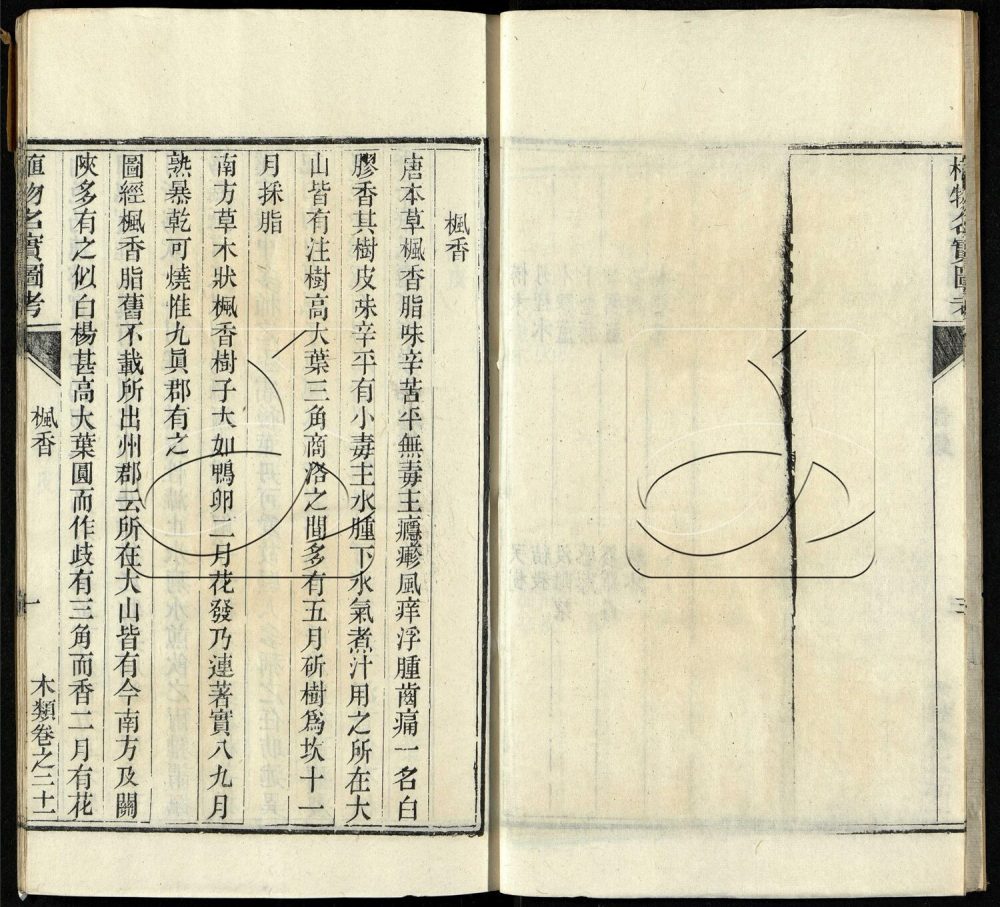 植物名實圖考
三
楓香
唐本草楓香脂味辛苦平無毒主癮𤺋風痒浮腫齒痛一名白
膠香其樹皮味辛平有小毒主水腫下水氣煮汁用之所在大
山皆有注樹高大葉三角商洛之間多有五月斫樹爲坎十一
月採脂
南方草木狀楓香樹子大如鴨卵二月花發乃連著實八九月
熟暴乾可燒惟九眞郡有之
圖經楓香脂舊不載所出州郡云所在大山皆有今南方及關
陜多有之似白楊甚高大葉圓而作歧有三角而香二月有花
植物名實圖考
楓香
一
木類卷之三十一